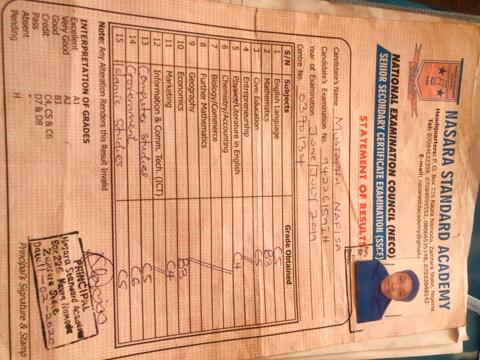 NASARA STANDARD ACADEMY
Headquarters: P. O. Box 235 Kaura Namoda, Zamfara State, Nigeria.
NATIONAL EXAMINATION COUNCIL (NECO)
SENIOR SECONDARY CERTIFICATE EXAMINATION (SSCE)
STATEMENT OF RESULTS
Candidate's Name MUSTAPHA NAFISA
Candidate's Examination No.
Year of Examination JUNE/JULY 2019
Centre No. 0370134
S/N Subjects Grade Obtained
1 English Language C5
2 Mathematics B3
3 Civic Education C5
4 Entrepreneurship
5 Physics/Literature in English C4
6 Chemistry/Accounting
7 Biology/Commerce
8 Further Mathematics
9 Geography
10 Economics B3
11 Marketing C4
12 Information & Comm. Tech. (ICT)
13 Computer Studies C5
14 Government C6
15 Islamic Studies C5
Note: Any Alteration Renders this Result Invalid
INTERPRETATION OF GRADES
Excellent A1
Very Good A2
Good B3
Credit C4, C5 & C6
Pass D7 & D8
Absent
Pending H
PRINCIPAL
Nasara Standard Academy
Box 235 Kaura Namoda
Zamfara State
Principal's Signature & Stamp